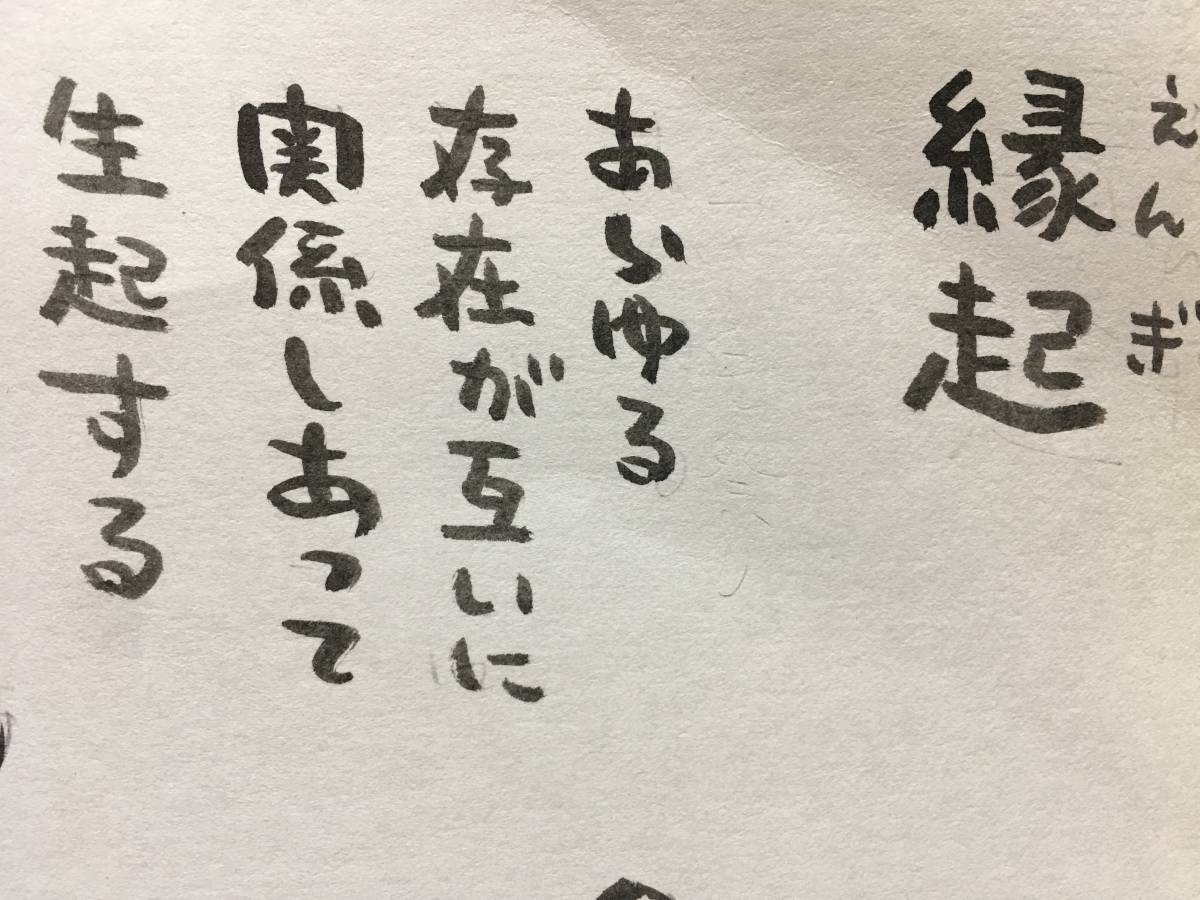 えんぎ
縁起
あらゆる
存在が互いに
関係しあって
生起する